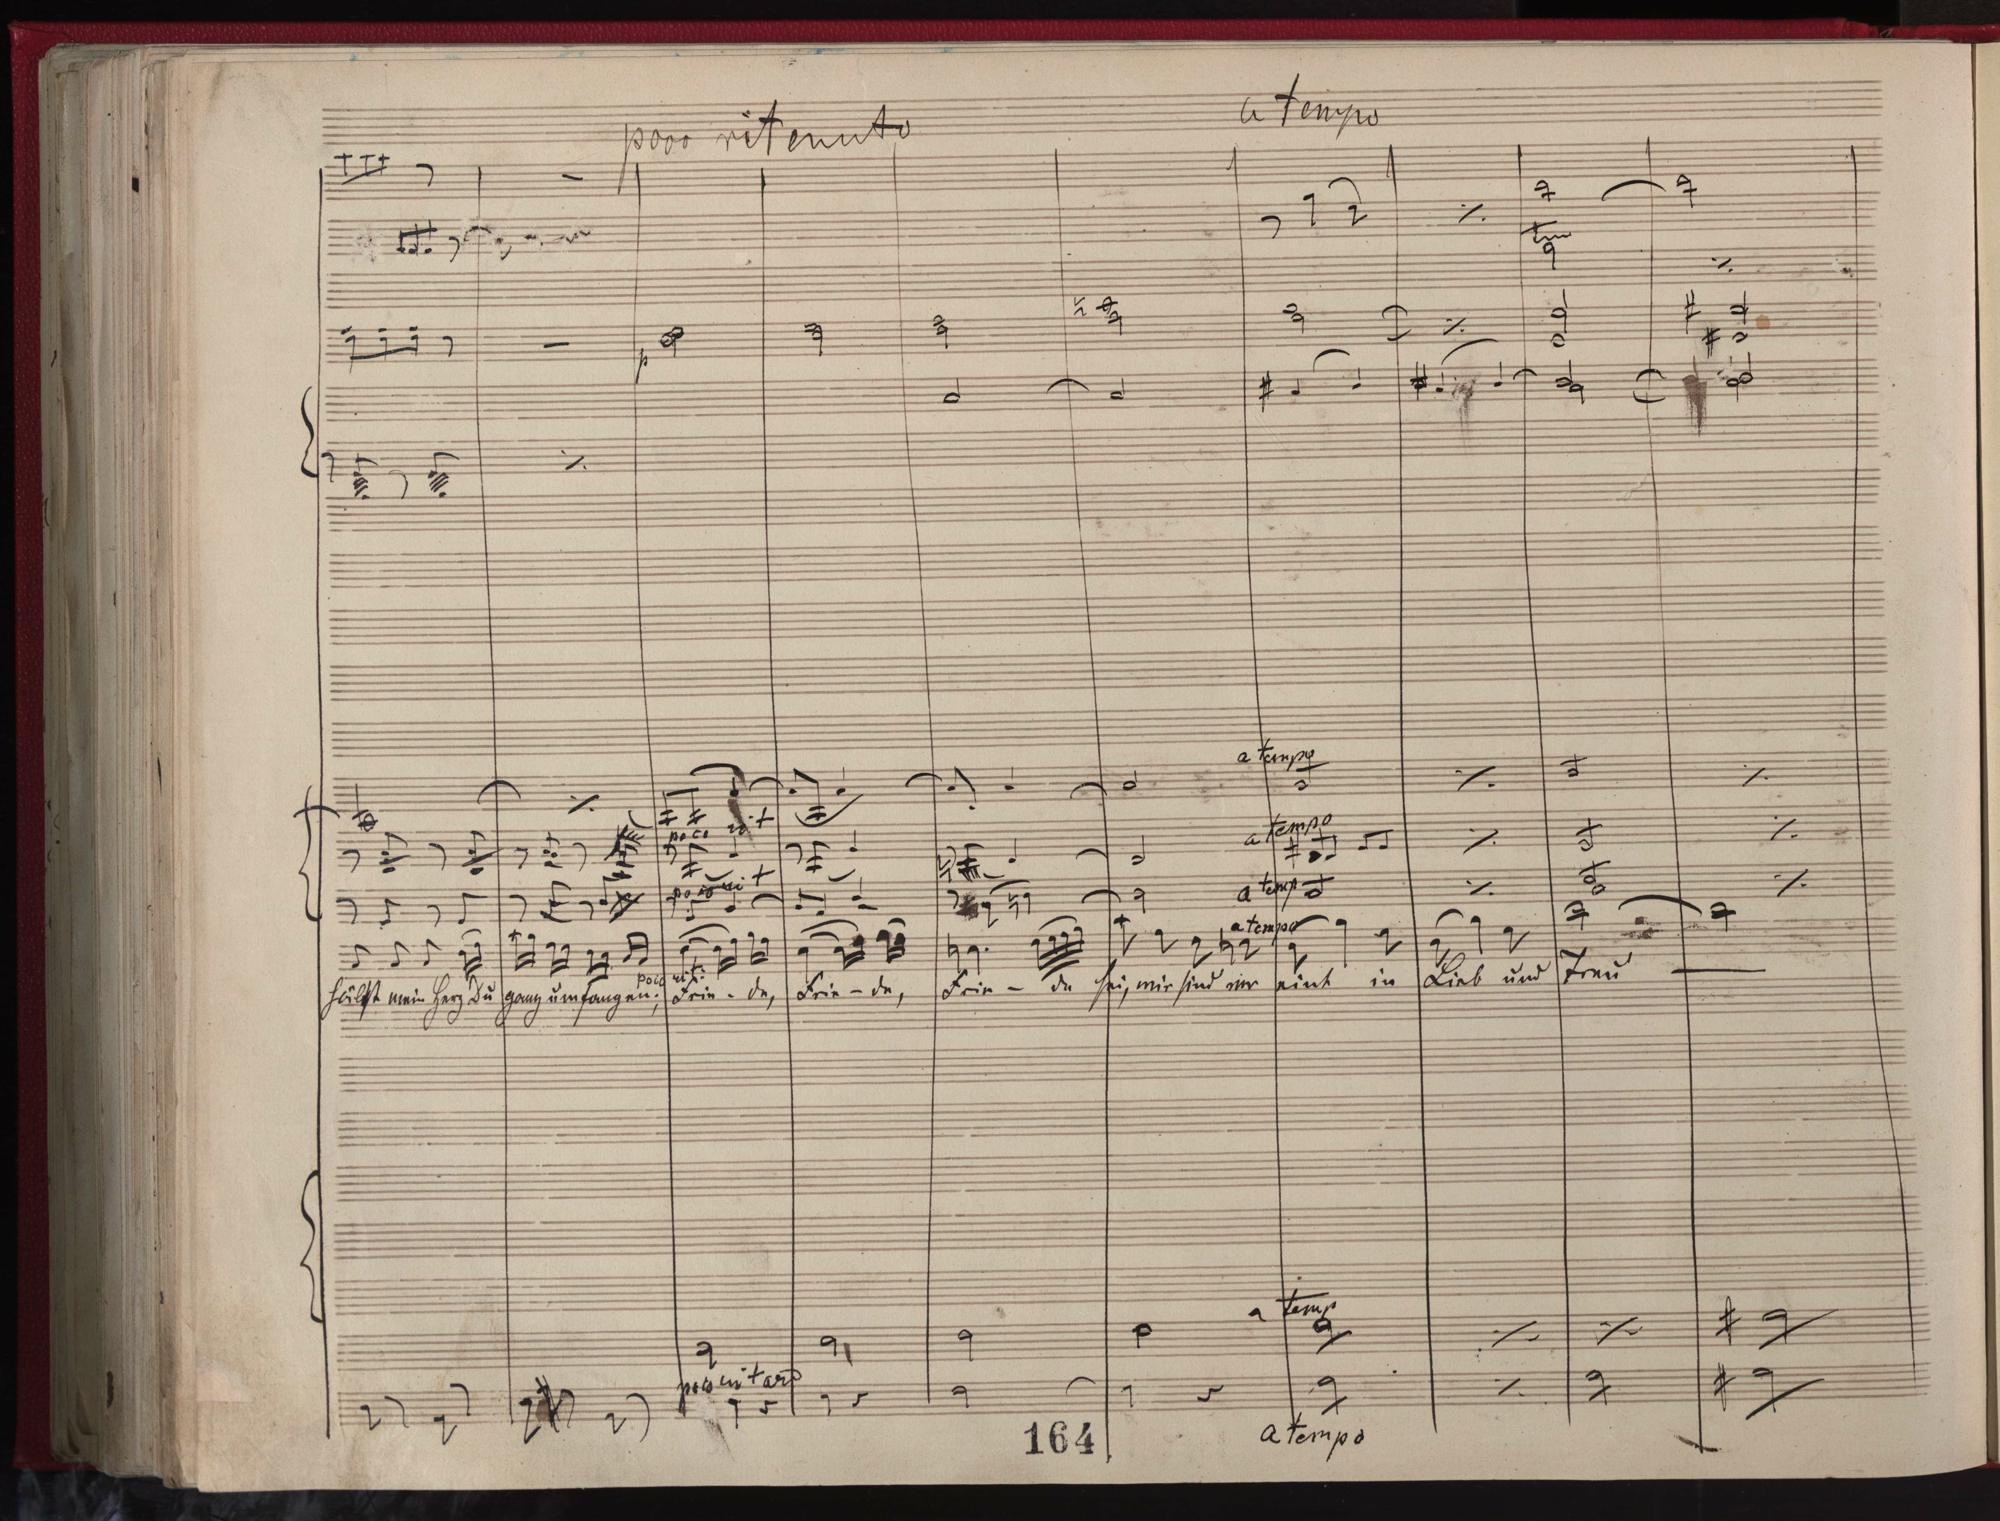 poco ritenuto
a tempo
p
a tempo
poco rit
a tempo
poco rit
a temp
a tempo
poco rit:
hältst mein Herz Du ganz umfangen; Frie - de, Frie - de, Frie - de sei, wir sind ver eint in Lieb und Treu
a temp
poco ritard
164
a tempo